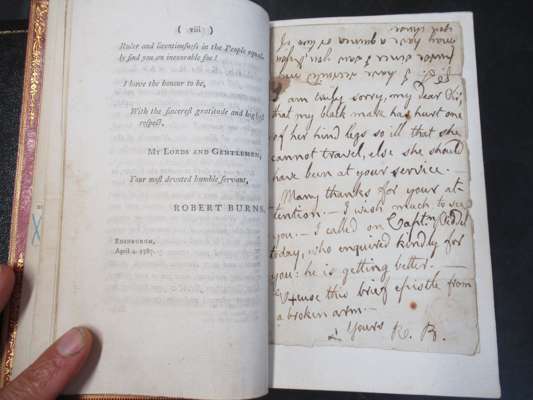 ( viii )
Ruler and licentiousness in the People equal-
ly find you an inexorable foe!
I have the honour to be,
With the sincerest gratitude and highest
respect,
MY LORDS AND GENTLEMEN,
Your most devoted humble servant,
ROBERT BURNS.
EDINBURGH,
April 4. 1787.
I am truly sorry, my Dear Sir,
that my black mare has hurt one
of her hind legs so ill that she
cannot travel, else she should
have been at your service.
Many thanks for your at-
tention. — I wish much to see
you. — I called on Captn
today, who enquired kindly for
you: he is getting better. —
Excuse this brief epistle from
a broken arm. —
Yours R. B.